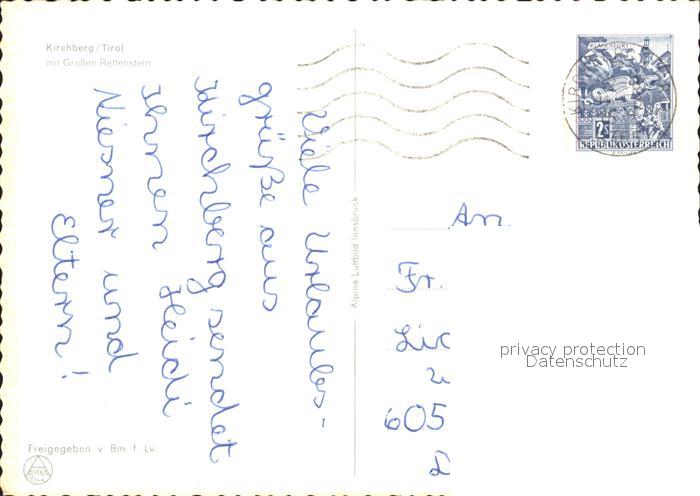 Kirchberg/Tirol
mit Großen Rettenstein
Viele Urlaubs-
grüße aus
Kirchberg sendet
Ihnen Heidi
und
Eltern!
Freigegeben v. Bm. f. Lv.
Alpine Luftbild Innsbruck
2S
REPUBLIK ÖSTERREICH
An
Fr.
605
privacy protection
Datenschutz